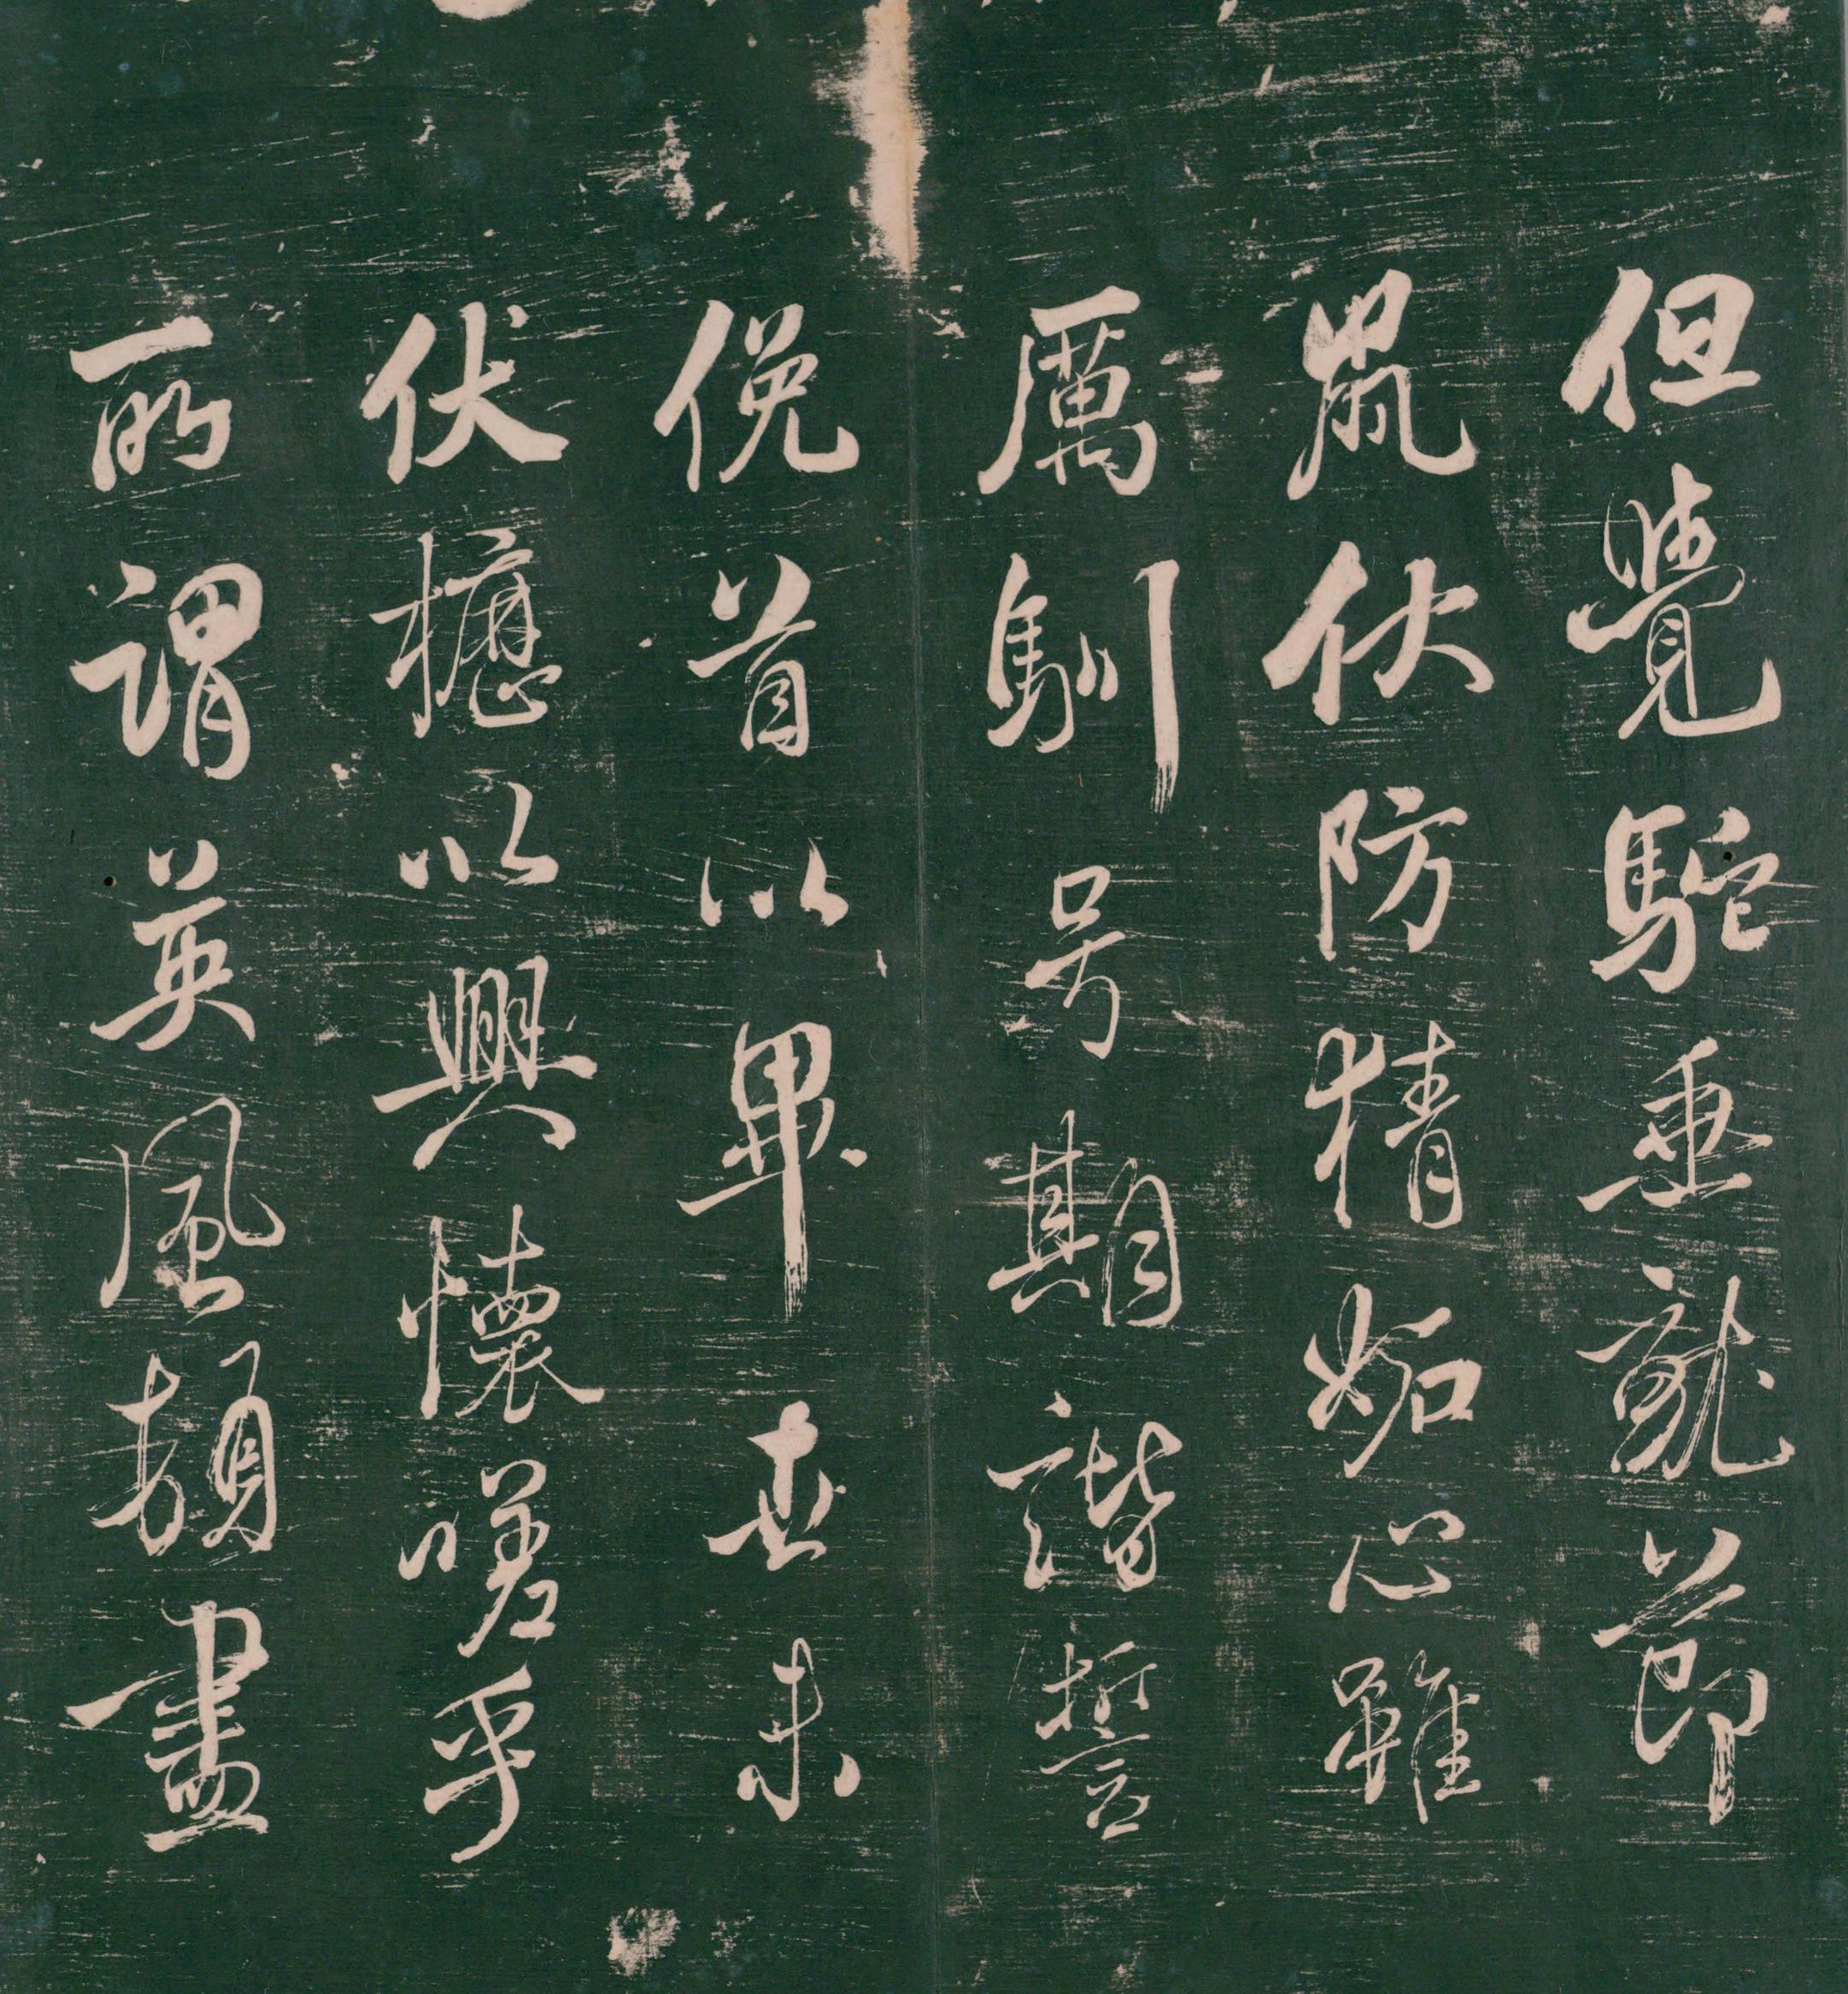 但覺駝垂就節
鼠伏防猜妬心雖
厲馴号期諧誓
俛首以畢世未
伏櫪以興懷嗟乎
所謂英風頓盡